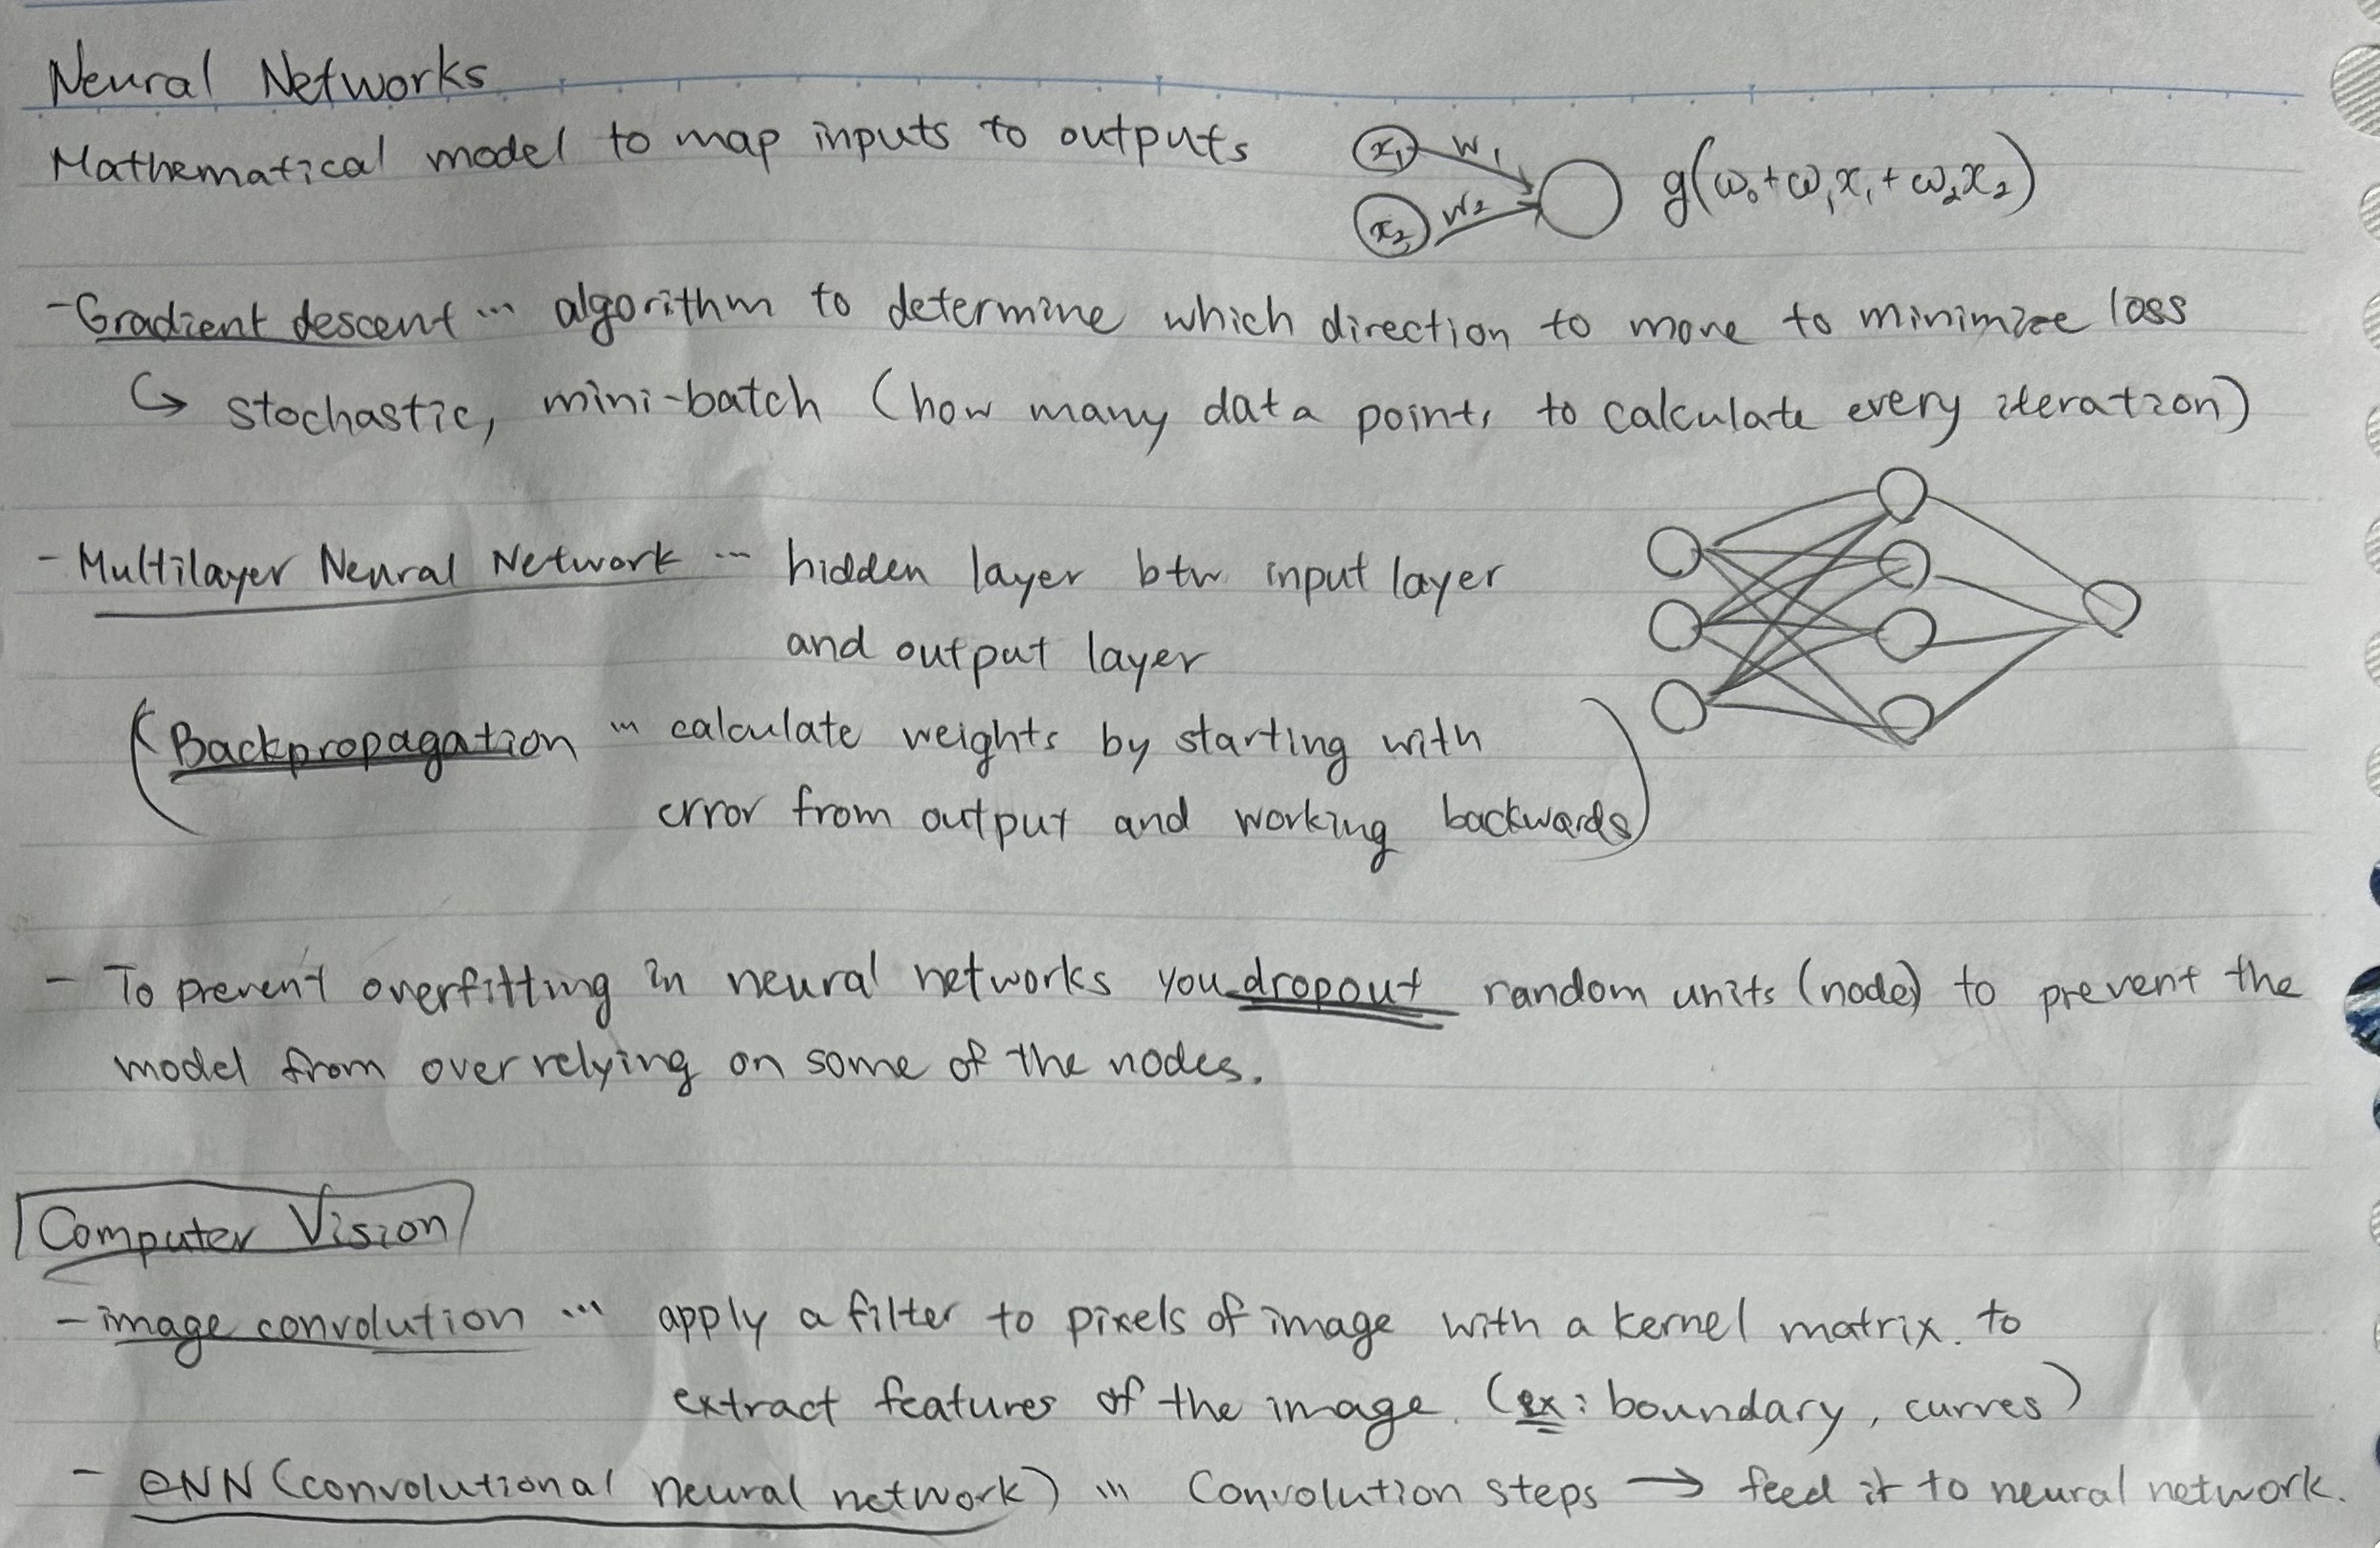 Neural Networks
Mathematical model to map inputs to outputs
x₁ w₁
x₂ w₂
g(ω₀+ω₁x₁+ω₂x₂)
- Gradient descent ... algorithm to determine which direction to move to minimize loss
↳ stochastic, mini-batch (how many data points to calculate every iteration)
- Multilayer Neural Network ... hidden layer btw input layer
and output layer
(Backpropagation ... calculate weights by starting with
error from output and working backwards)
- To prevent overfitting in neural networks you dropout random units (node) to prevent the
model from over relying on some of the nodes.
Computer Vision
- image convolution ... apply a filter to pixels of image with a kernel matrix. to
extract features of the image. (ex: boundary, curves)
- CNN (convolutional neural network) ... Convolution steps → feed it to neural network.